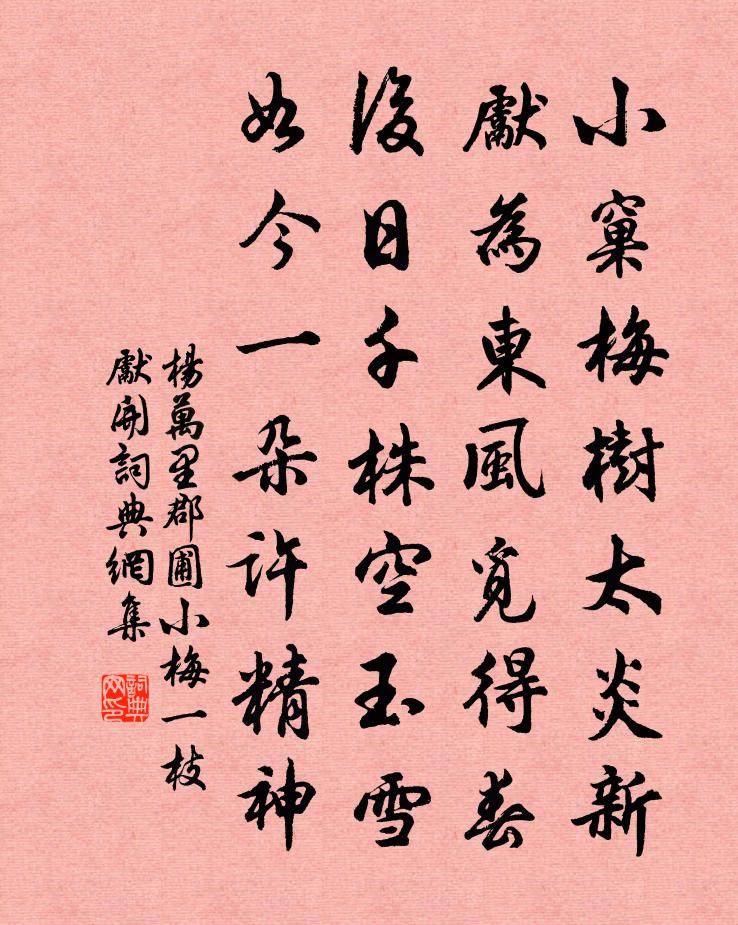 小窠梅樹太炎新
獻為東風覓得春
後日千株空玉雪
如今一朵許精神
楊萬里郡圃小梅一枝
獻開詞典網集
詞典网印